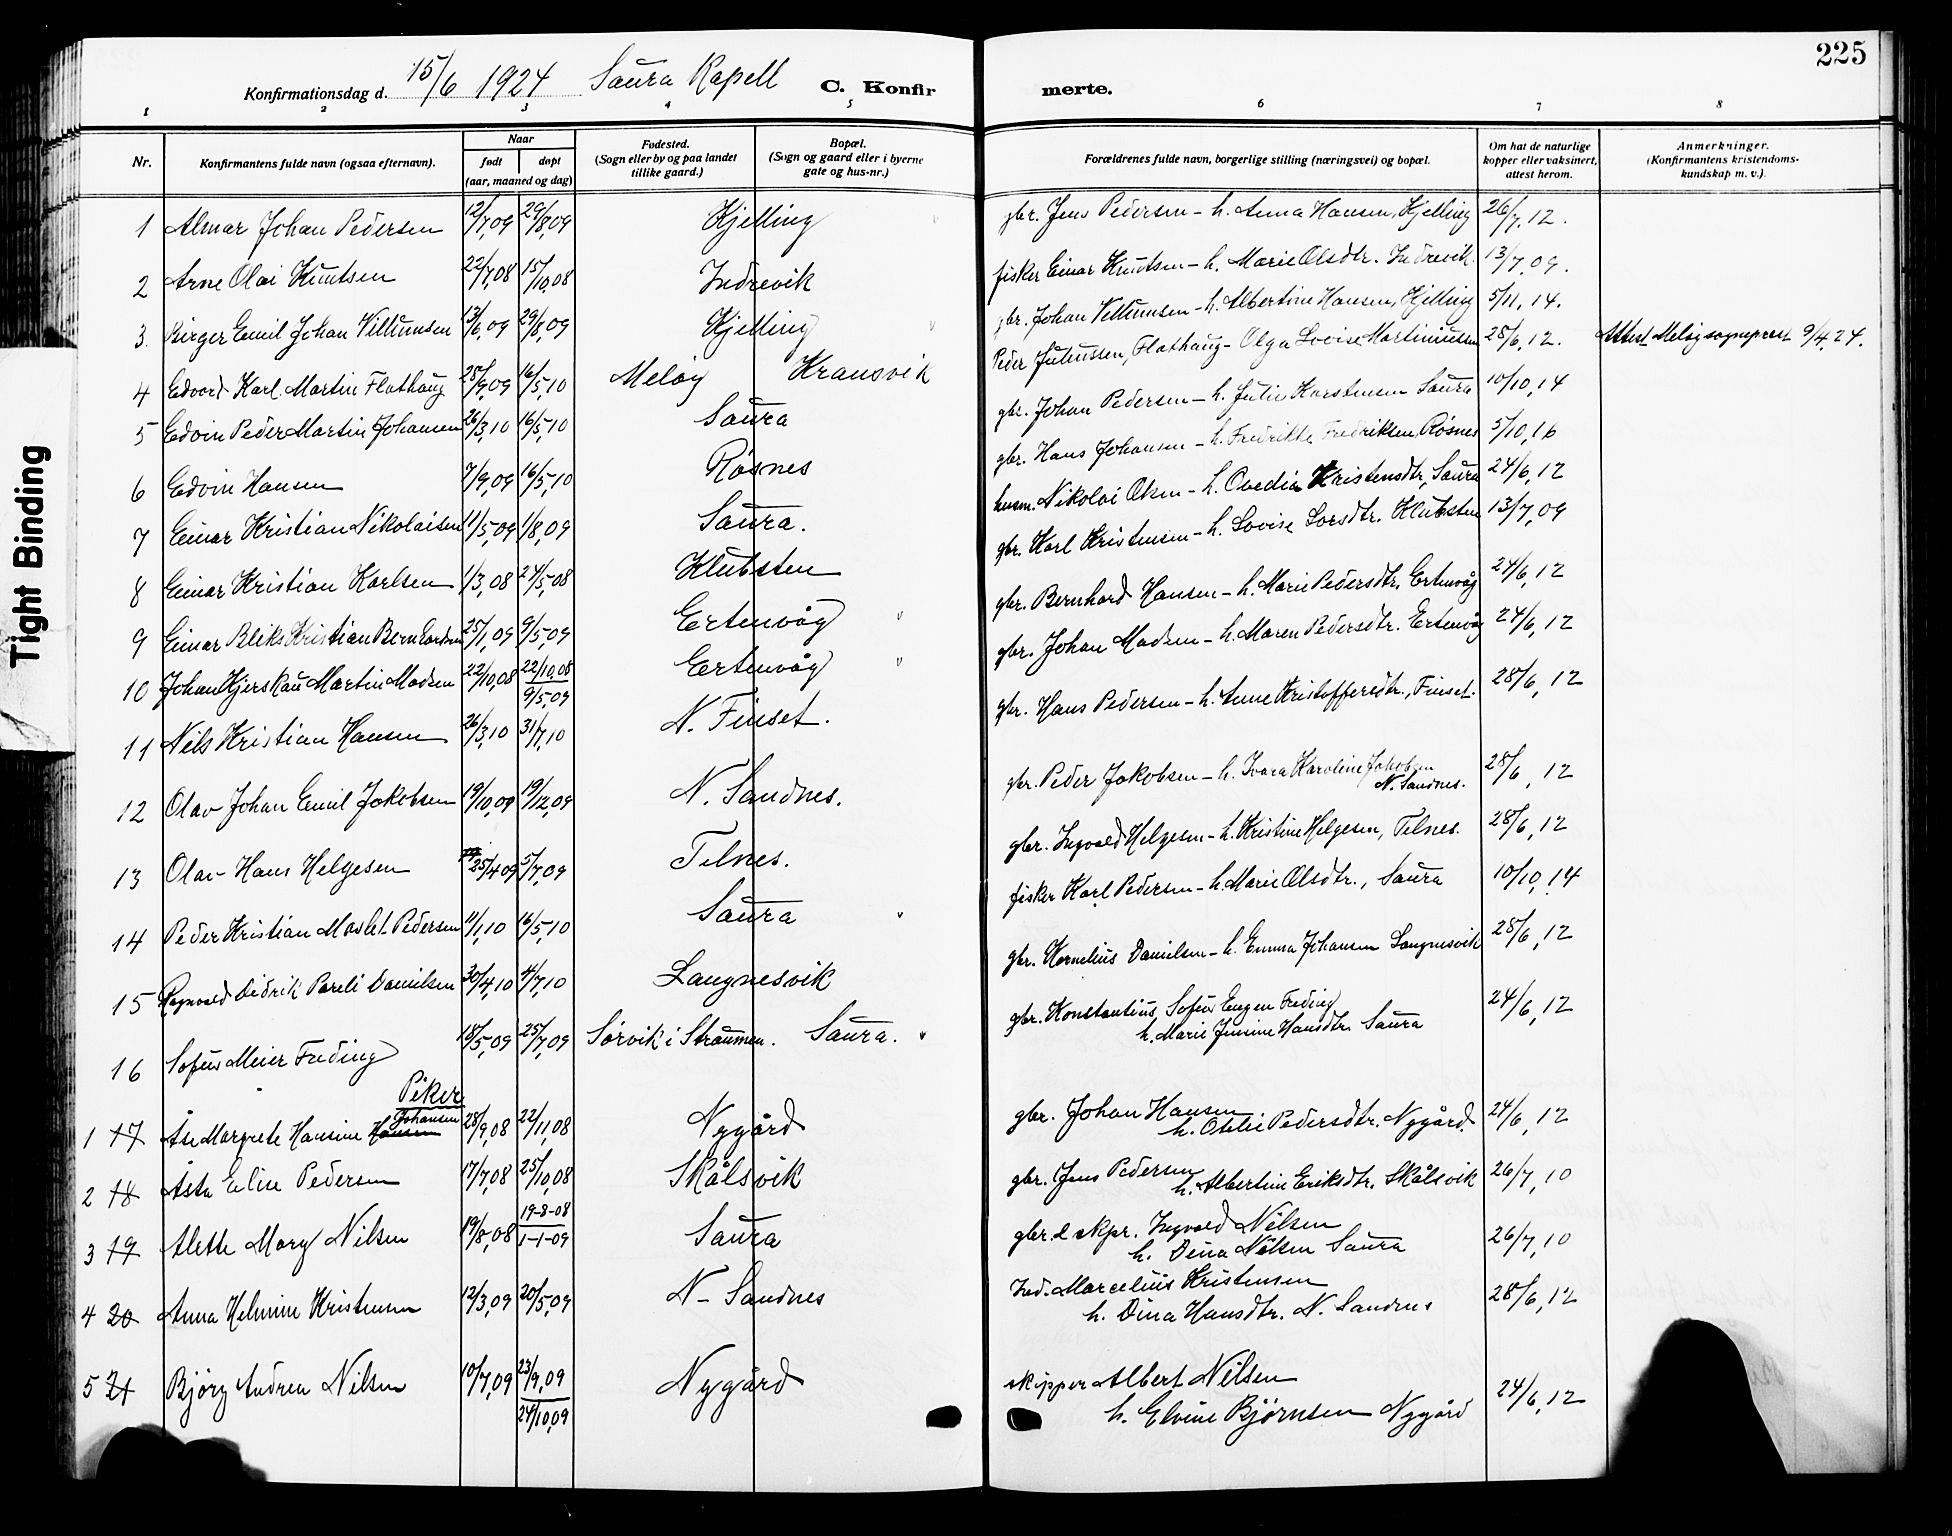 225
Konfirmationsdag d. 15/6 1924 Saura Kapell C. Konfir merte.
1 2 3 4 5 6 7 8
Nr. Konfirmantens fulde navn (ogsaa efternavn). Naar født døpt (aar, maaned og dag) Fødested. (Sogn eller by og paa landet tillike gaard.) Bopæl. (Sogn og gaard eller i byerne gate og hus-nr.) Forældrenes fulde navn, borgerlige stilling (næringsvei) og bopæl. Om hat de naturlige kopper eller vaksinert, attest herom. Anmerkninger. (Konfirmantens kristendoms-kundskap m. v.).
1 Almar Johan Pedersen 12/7,09 29/8,09 Kjelling gbr. Jens Pedersen - h. Anna Hansen, Kjelling 26/7,12.
2 Arne Olai Knutsen 22/7,08 15/10,08 Indrevik fisker Einar Knutsen - h. Marie Olsdtr. Indrevik. 13/7,09.
3. Birger Emil Johan Villumsen 13/6,09 29/8,09 Kjelling gbr. Johan Villumsen - h. Albertine Hansen, Kjelling 5/11,14.
4 Edvard Karl Martin Flathaug 25/9,09 16/5,10 Meløy Kransvik Peder Juliussen, Flathaug - Olga Lovise Martiniussen 28/6,12. Attest Meløy sogneprest 9/4,24.
5 Edvin Peder Martin Johansen 26/3,10 16/5,10 Saura gbr. Johan Pedersen - h. Julie Karstensen Saura 10/10,14
6 Edvin Hansen 7/9,09 16/5,10 Røsnes gbr. Hans Johansen - h. Fredrikke Fredriksen, Røsnes 5/10,16
7 Einar Kristian Nikolaisen 11/5,09 1/8,09 Saura. husm. Nikolai Olsen - h. Ovedia Kristensdtr, Saura 24/6,12
8 Einar Kristian Karlsen 1/3,08 24/5,08 Klubsten gbr. Karl Kristensen - h. Lovise Larsdtr. Klubsten 13/7,09
9 Einar Bliks Kristian Bernhardsen 25/1,09 9/5,09 Ertenvåg gbr. Bernhard Hansen - h. Marie Pedersdtr. Ertenvåg 24/6,12
10 Johan Hjerskau Martin Madsen 22/10,08 22/10,08 9/5,09 Ertenvåg gbr. Johan Madsen - h. Maren Pedersdtr. Ertenvåg 24/6,12
11 Nils Kristian Hansen 26/3,10 31/7,10 N. Finset. gbr. Hans Pedersen - h. Anne Kristoffersdtr., Finset. 28/6,12
12 Olav Johan Emil Jakobsen 19/10,09 19/12,09 N. Sandnes. gbr. Peder Jakobsen - h. Ivara Karoline Jakobsen N. Sandnes. 28/6,12
13 Olav Hans Helgesen 25/4 09 5/7,09 Telnes. gbr. Ingvald Helgesen - h. Kristine Helgesen, Telnes. 28/6,12
14 Peder Kristian Moslet Pedersen 11/1,10 16/5,10 Saura fisker Karl Pedersen - h. Marie Olsdtr., Saura 10/10,14
15 Ragnvald Didrik Pareli Danielsen 30/4,10 4/7,10 Langnesvik gbr. Kornelius Danielsen - h. Emma Johansen Langnesvik 28/6,12
16 Sofus Meier Freding 18/5,09 25/7,09 Sørvik i Straumen. Saura. gbr. Konstantius Sofus Eugen Freding h. Marie Jensine Hansdtr. Saura 24/6,12
Piker
1 17 Åse Margrete Hansine Hansen Johansen 28/9,08 22/11,08 Nygård gbr. Johan Hansen h. Otelie Pedersdtr. Nygård. 24/6,12
2 18 Åsta Eline Pedersen 17/7,08 25/10,08 Skålsvik gbr. Jens Pedersen h. Albertine Eriksdtr. Skålsvik 26/7,10
3 19 Alette Mary Nilsen 19/8,08 19-8-08 1-1-09 Saura gbr. & skpr. Ingvald Nilsen h. Dina Nilsen Saura 26/7,10
4 20 Anna Helmine Kristensen 12/3,09 20/5,09 N- Sandnes Ind. Marcelius Kristensen h. Dina Hansdtr. N. Sandnes 28/6,12
5 21 Bjørg Andrea Nilsen 10/7,09 23/9,09 24/10,09 Nygård skipper Albert Nilsen h. Elvine Bjørnsen Nygård 24/6,12
Tight Binding